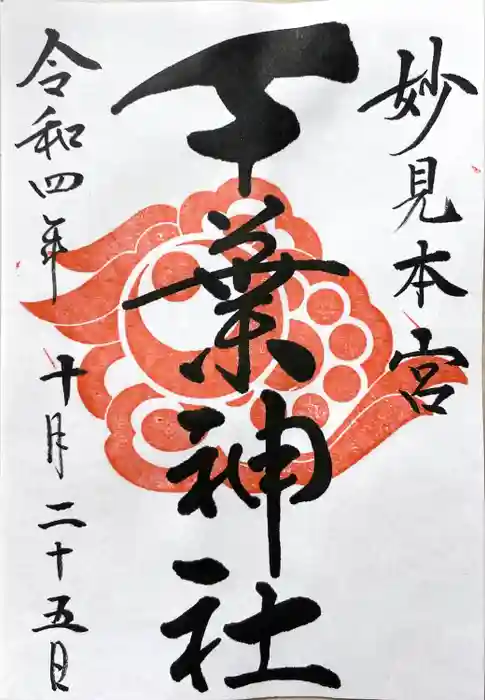 妙見本宮
千葉神社
令和四年十月二十五日